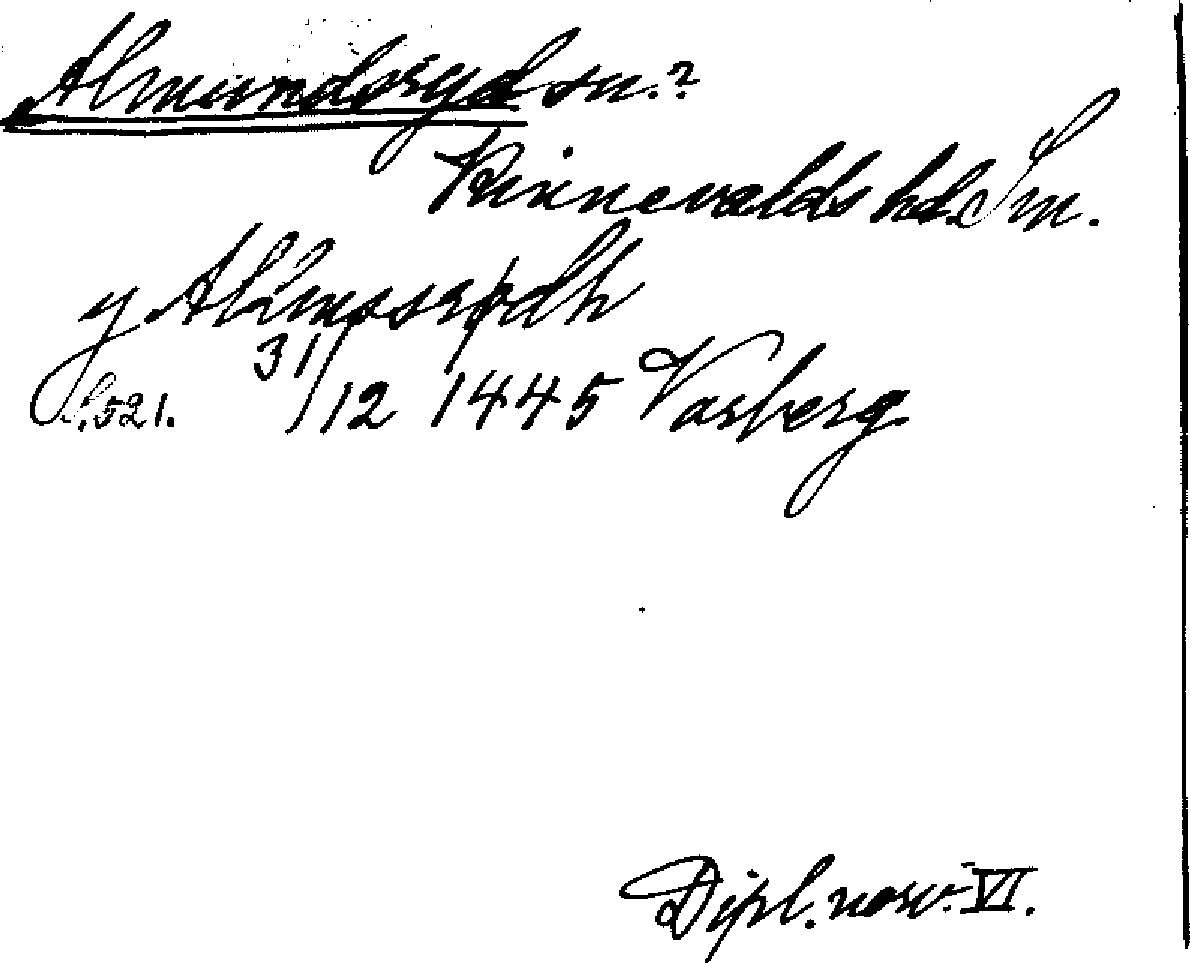 Almundsryd sn.?
Kinnevalds hd. Sm.
y Almossrødh
s. 521. 31/12 1445 Varberg
Dipl. norv. VI.